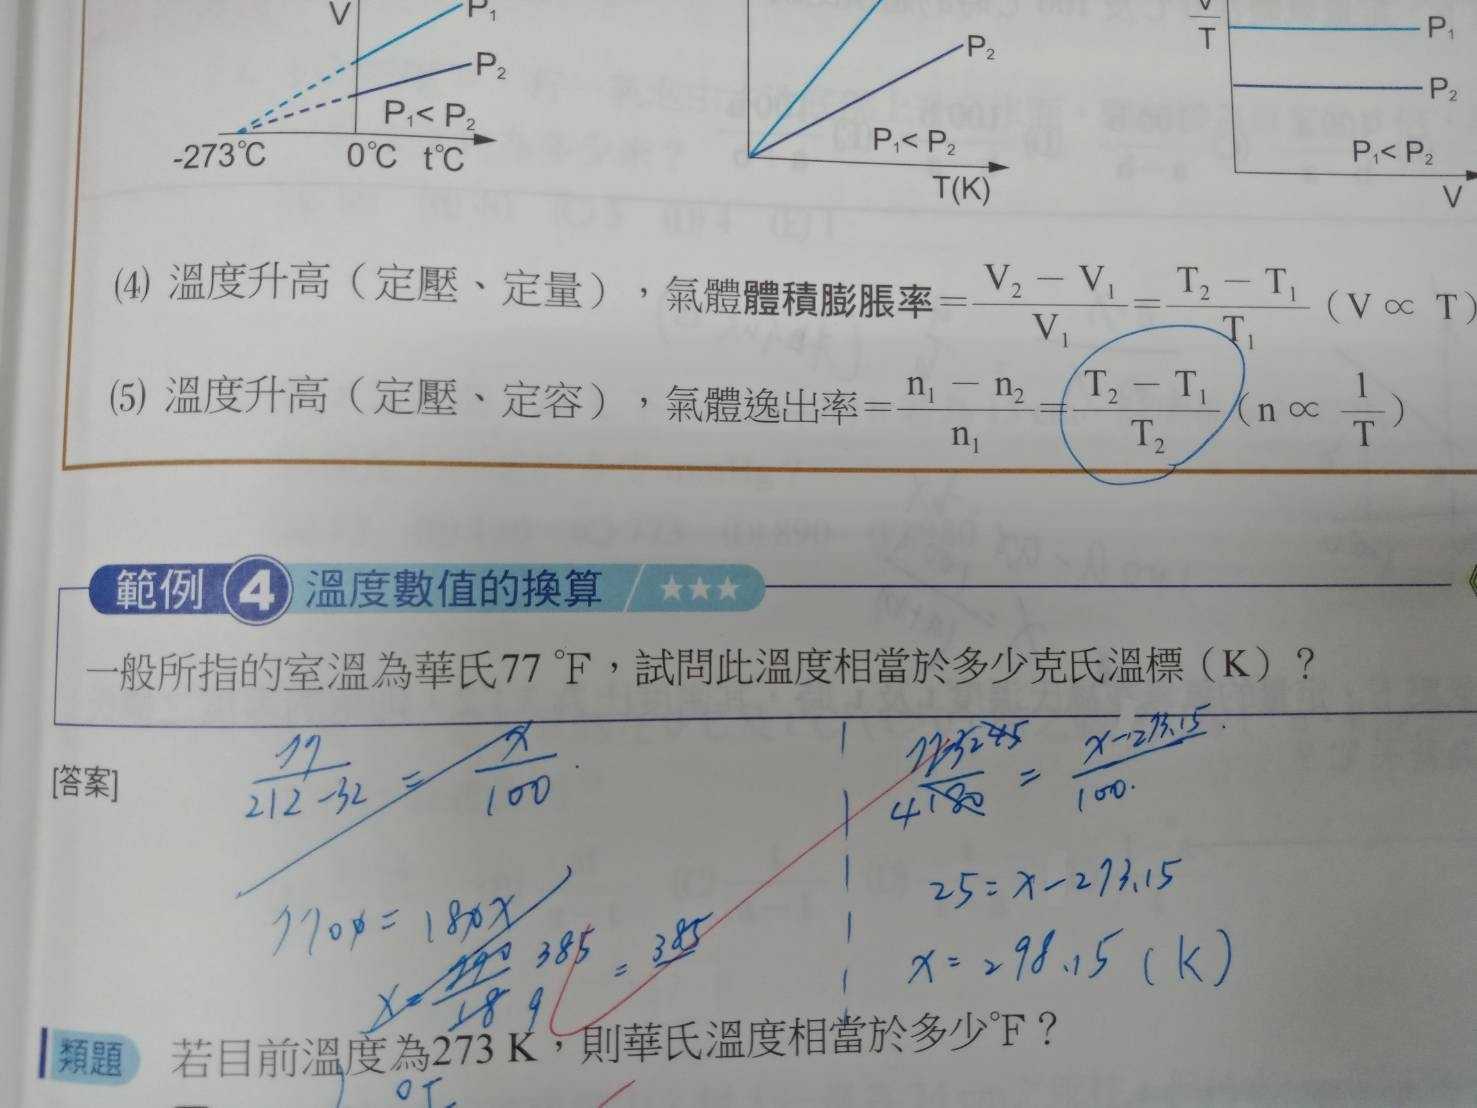 V P₁ P₂ P₁< P₂ -273℃ 0℃ t℃
P₂ P₁< P₂ T(K)
V/T P₁ P₂ P₁< P₂ V
(4) 溫度升高（定壓、定量），氣體體積膨脹率=(V₂ − V₁)/V₁=(T₂ − T₁)/T₁（V ∝ T）
(5) 溫度升高（定壓、定容），氣體逸出率=(n₁ − n₂)/n₁=(T₂ − T₁)/T₂（n ∝ 1/T）
範例 4 溫度數值的換算 ★★★
一般所指的室溫為華氏77 °F，試問此溫度相當於多少克氏溫標（K）？
[答案]
77/(212-32) = x/100
7700 = 180x
385/9 = 385
(x-273.15)/100
25 = x-273.15
x = 298.15 (K)
類題 若目前溫度為273 K，則華氏溫度相當於多少°F？